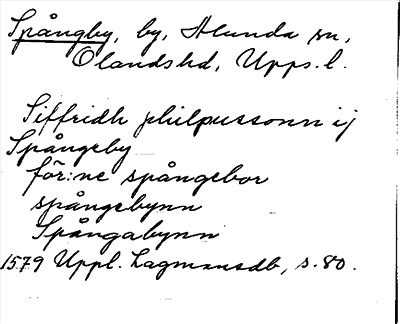 Spångby, by, Alunda sn,
Olands hd, Upps.l.
Siffridh philpussonn ij
Spångeby
för:ne spångebor
spångebynn
Spångabynn
1579 Uppl. Lagmansdb, s.80.